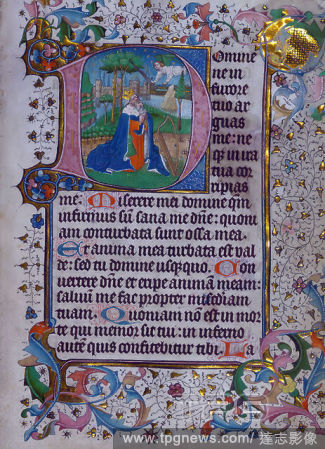 Domine
ne in
furore
tuo ar
guas
me: ne
q in ira
tua cor
ripias
me. Miserere mei domine qm
infirmus sum sana me dne: quoni
am conturbata sunt ossa mea.
Et anima mea turbata est val
de: sed tu domine usquequo. Con
vertere dne et eripe animam meam:
salvum me fac propter misediam
tuam. Quoniam no est in mor
te qui memor sit tui: in inferno
aute quis confitebitur tibi. La
www.tpgnews.com/ 達志影像